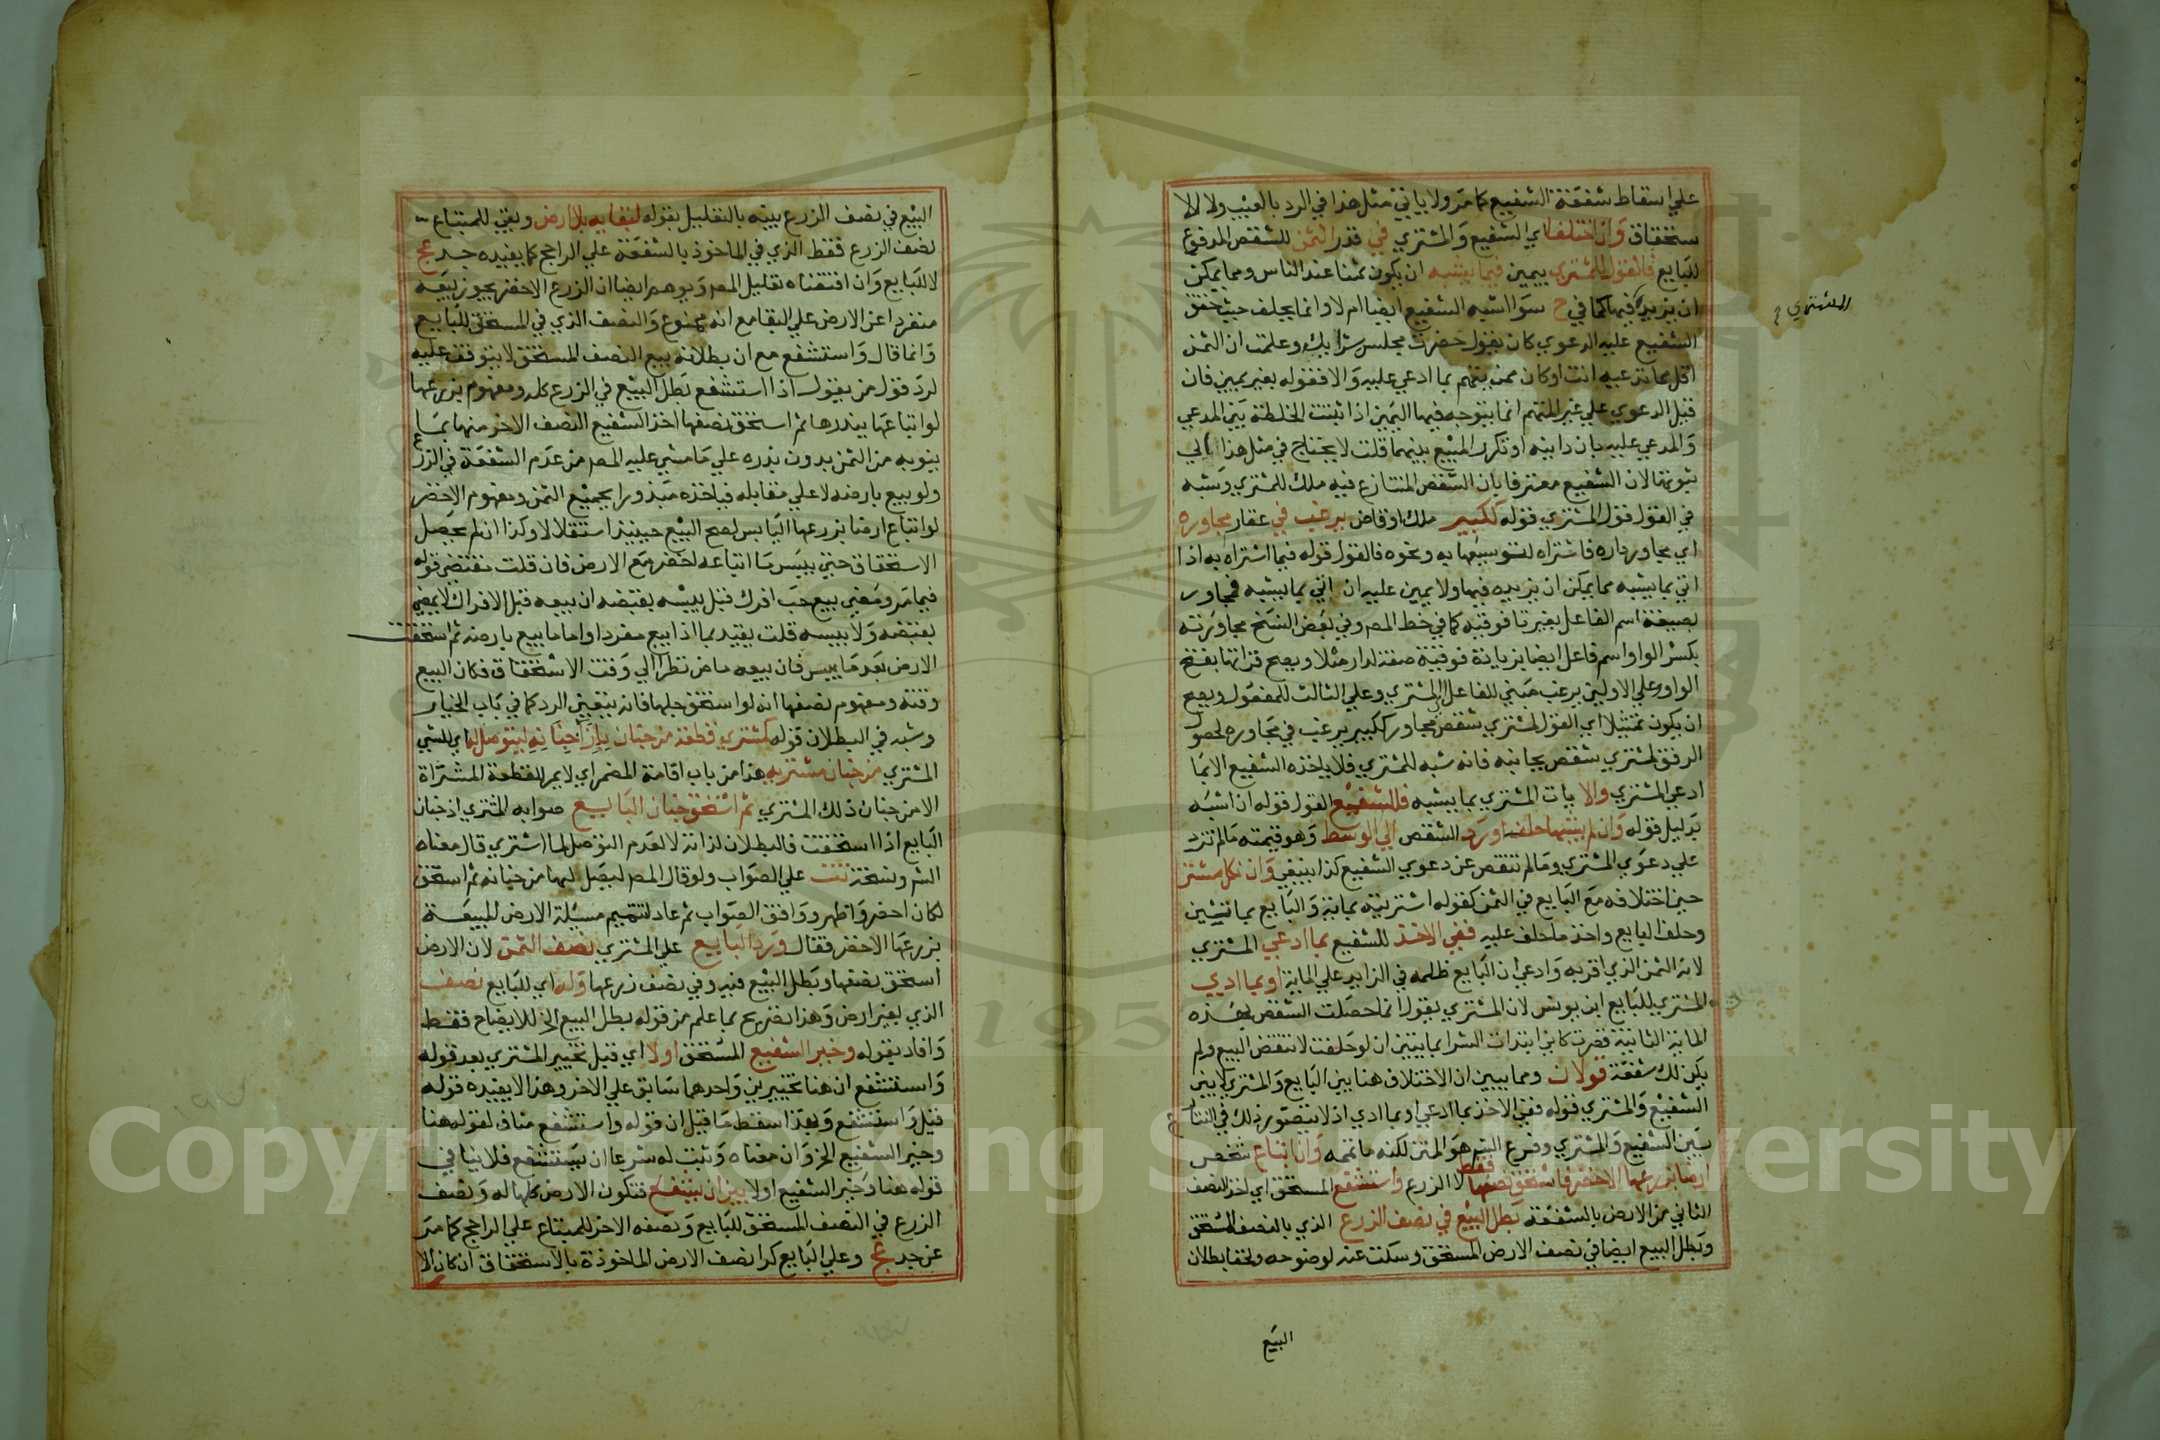 علي اسقاط شفعة الشفيع كما مر ولا ياتي مثل هذا في الرد بالعيب ولا الا
ستحقاق وان اختلفا اي الشفيع والمشتري في قدر الثمن للشقص المدفوع
للبايع فالقول للمشتري بيمين فيما يشبه ان يكون ثمنا عند الناس ومما يمكن
ان يزيد فيها كما في ح سوا اشبه الشفيع ايضا ام لا وانما يحلف حيث حقق
المشتري
الشفيع عليه الدعوي كان يقول حضرت مجلس شرايك وعلمت ان الثمن
اقل مما تدعيه انت او كان ممن يتهم بما ادعي عليه والا فقوله بغير يمين فان
قيل الدعوي علي غير المتهم انما يتوجه فيها اليمين اذا ثبتت الخلطة بين المدعي
والمدعي عليه بان داينه او تكرر المبيع بينهما قلت لا يحتاج في مثل هذا الي
ثبوتها لان الشفيع معترف بان الشقص المتنازع فيه ملك للمشتري وشبه
في القول قول المشتري قوله ككبير ملك او قاض يرغب في عقار مجاوره
اي مجاور داره فاشتراه لتوسيعها به ونحوه فالقول قوله فيما اشتراه به اذا
اتي بما يشبه مما يمكن ان يزيده فيها ولا يمين عليه ان اتي بما يشبه فمجاور
بصيغة اسم الفاعل بغير تا فوقية كما في خط المص وفي بعض النسخ مجاورته
بكسر الواو اسم فاعل ايضا بزيادة فوقية صفة لدار مثلا ويصح قراتها بفتح
الواو وعلي الاولين يرغب مبني للفاعل اي المشتري وعلي الثالث للمفعول ويصح
ان يكون تمثيلا اي القول لمشتري شقص مجاور ككبير يرغب في مجاوره لحصول
الرفق لمشتري شقص بجانبه فانه شبه للمشتري فلا ياخذه الشفيع الا بما
ادعي المشتري والا يات المشتري بما يشبه فللشفيع القول قوله ان اشبه
بدليل قوله وان لم يشبها حلفا ورد الشقص الي الوسط وهو قيمته ما لم تزد
علي دعوي المشتري وما لم تنقص عن دعوي الشفيع كذا ينبغي وان نكل مشتر
حين اختلافه مع البايع في الثمن كقوله اشتريته بماية والبايع بمايتين
وحلف البايع واخذ ما حلف عليه ففي الاخذ للشفيع بما ادعي المشتري
لانه الثمن الذي اقر به وادعي ان البايع ظلمه في الزايد علي الماية او بما ادي
المشتري للبايع ابن يونس لان المشتري يقول انما حصلت الشقص بهذه
الماية الثانية فصرت كاني ابتدات الشرا بمايتين اذ لو حلفت لانتقض البيع ولم
يكن لك شفعة قولان ومما يبين ان الاختلاف هنا بين البايع والمشتري لا بين
الشفيع والمشتري قوله ففي الاخذ بما ادعي او بما ادي اذ لا يتصور ذلك في التنازع
بين الشفيع والمشتري وفرع التيم هو المتن لكنه ما تممه وان ابتاع شخص
ارضا بزرعها الاخضر فاستحق نصفها فقط لا الزرع واستشفع المستحق اي اخذ النصف
الثاني من الارض بالشفعة بطل البيع في نصف الزرع الذي بالنصف المستحق
وبطل البيع ايضا في نصف الارض المستحق وسكت عنه لوضوحه ولخفا بطلان
البيع
البيع في نصف الزرع بينه بالتقليل بقوله لبقايه بلا ارض وبقي للمبتاع
نصف الزرع فقط الذي في الماخوذ بالشفعة علي الراجح كما يفيده جد عج
لا للبايع وان اقتضاه تقليل المص ويوهم ايضا ان الزرع الاخضر يجوز بيعه
منفردا عن الارض علي البقا مع انه ممنوع والنصف الذي في المستحق للبايع
وانما قال واستشفع مع ان بطلانه بيع النصف المستحق لا يتوقف عليه
لرد قول من يقول اذا استشفع بطل البيع في الزرع كله ومفهوم بزرعها
لو ابتاعها ببذرها ثم استحق نصفها اخذ الشفيع النصف الاخر منها بما
ينوبه من الثمن بدون بذره علي ما مشي عليه المص من عدم الشفعة في الزرع
ولو بيع بارضه لا علي مقابله فياخذه مبذورا بجميع الثمن ومفهوم الاخضر
لو ابتاع ارضا بزرعها اليابس لصح البيع حينيذ استقلالا وكذا ان لم يحصل
الاستحقاق حتي يبس ما ابتاعه اخضر مع الارض فان قلت نقتضي قوله
فيما مر ومضي بيع حب افرك قبل يبسه بقبضه ان بيعه قبل الافراك لا يمضي
بقبضه ولا بيبسه قلت يقيد بما اذا بيع مفردا واما ما بيع بارضه ثم استحقت
الارض بعد ما يبس فان بيعه ماض نظرا الي وقت الاستحقاق فكان البيع
وقته ومفهوم نصفها انه لو استحق جلها فانه يتعين الرد كما في باب الخيار
وشبه في البطلان قوله كمشتري قطعة من جنان بازا جنانه ليتوصل له اي للشي
المشتري من جنان مشتريه هذا من باب اقامة المضمر اي لا يمر للقطعة المشتراة
الا من جنان ذلك المشتري ثم استحق جنان البايع صوابه المشتري اذ جنان
البايع اذا استحقت فالبطلان لذاته لا لعدم التوصل لما اشتري قال معناه
الشر ونسخة تت علي الصواب ولو قال المص ليصل لها من جنانه ثم استحق
لكان احضر واظهر ووافق الصواب ثم عاد لتتميم مسيلة الارض المبيعة
بزرعها الاخضر فقال ورد البايع علي المشتري نصف الثمن لان الارض
استحق نصفها وبطل البيع فيه وفي نصف زرعها وله اي للبايع نصف
الذي بغير ارض وهذا تصريح بما علم من قوله بطل البيع الخ للايضاح فقط
وافاد بقوله وخير الشفيع المستحق اولا اي قبل تخيير المشتري بعد قوله
واستشفع ان هنا تخييرين واحدهما سابق علي الاخر وهذا لا يفيده قوله
قبل واستشفع وبهذا سقط ما قيل ان قوله واستشفع مناف لقوله هنا
وخير الشفيع الخ وان معناه وثبت له شرعا ان يستشفع فلا ينافي
قوله هنا وخير الشفيع اولا بين ان يشفع فتكون الارض كلها له ونصف
الزرع في النصف المستحق للبايع ونصفه الاخر للمبتاع علي الراجح كما مر
عن جد عج وعلي البايع كرا نصف الارض الماخوذة بالاستحقاق ان كان الا
Copyright © King Saud University
1957